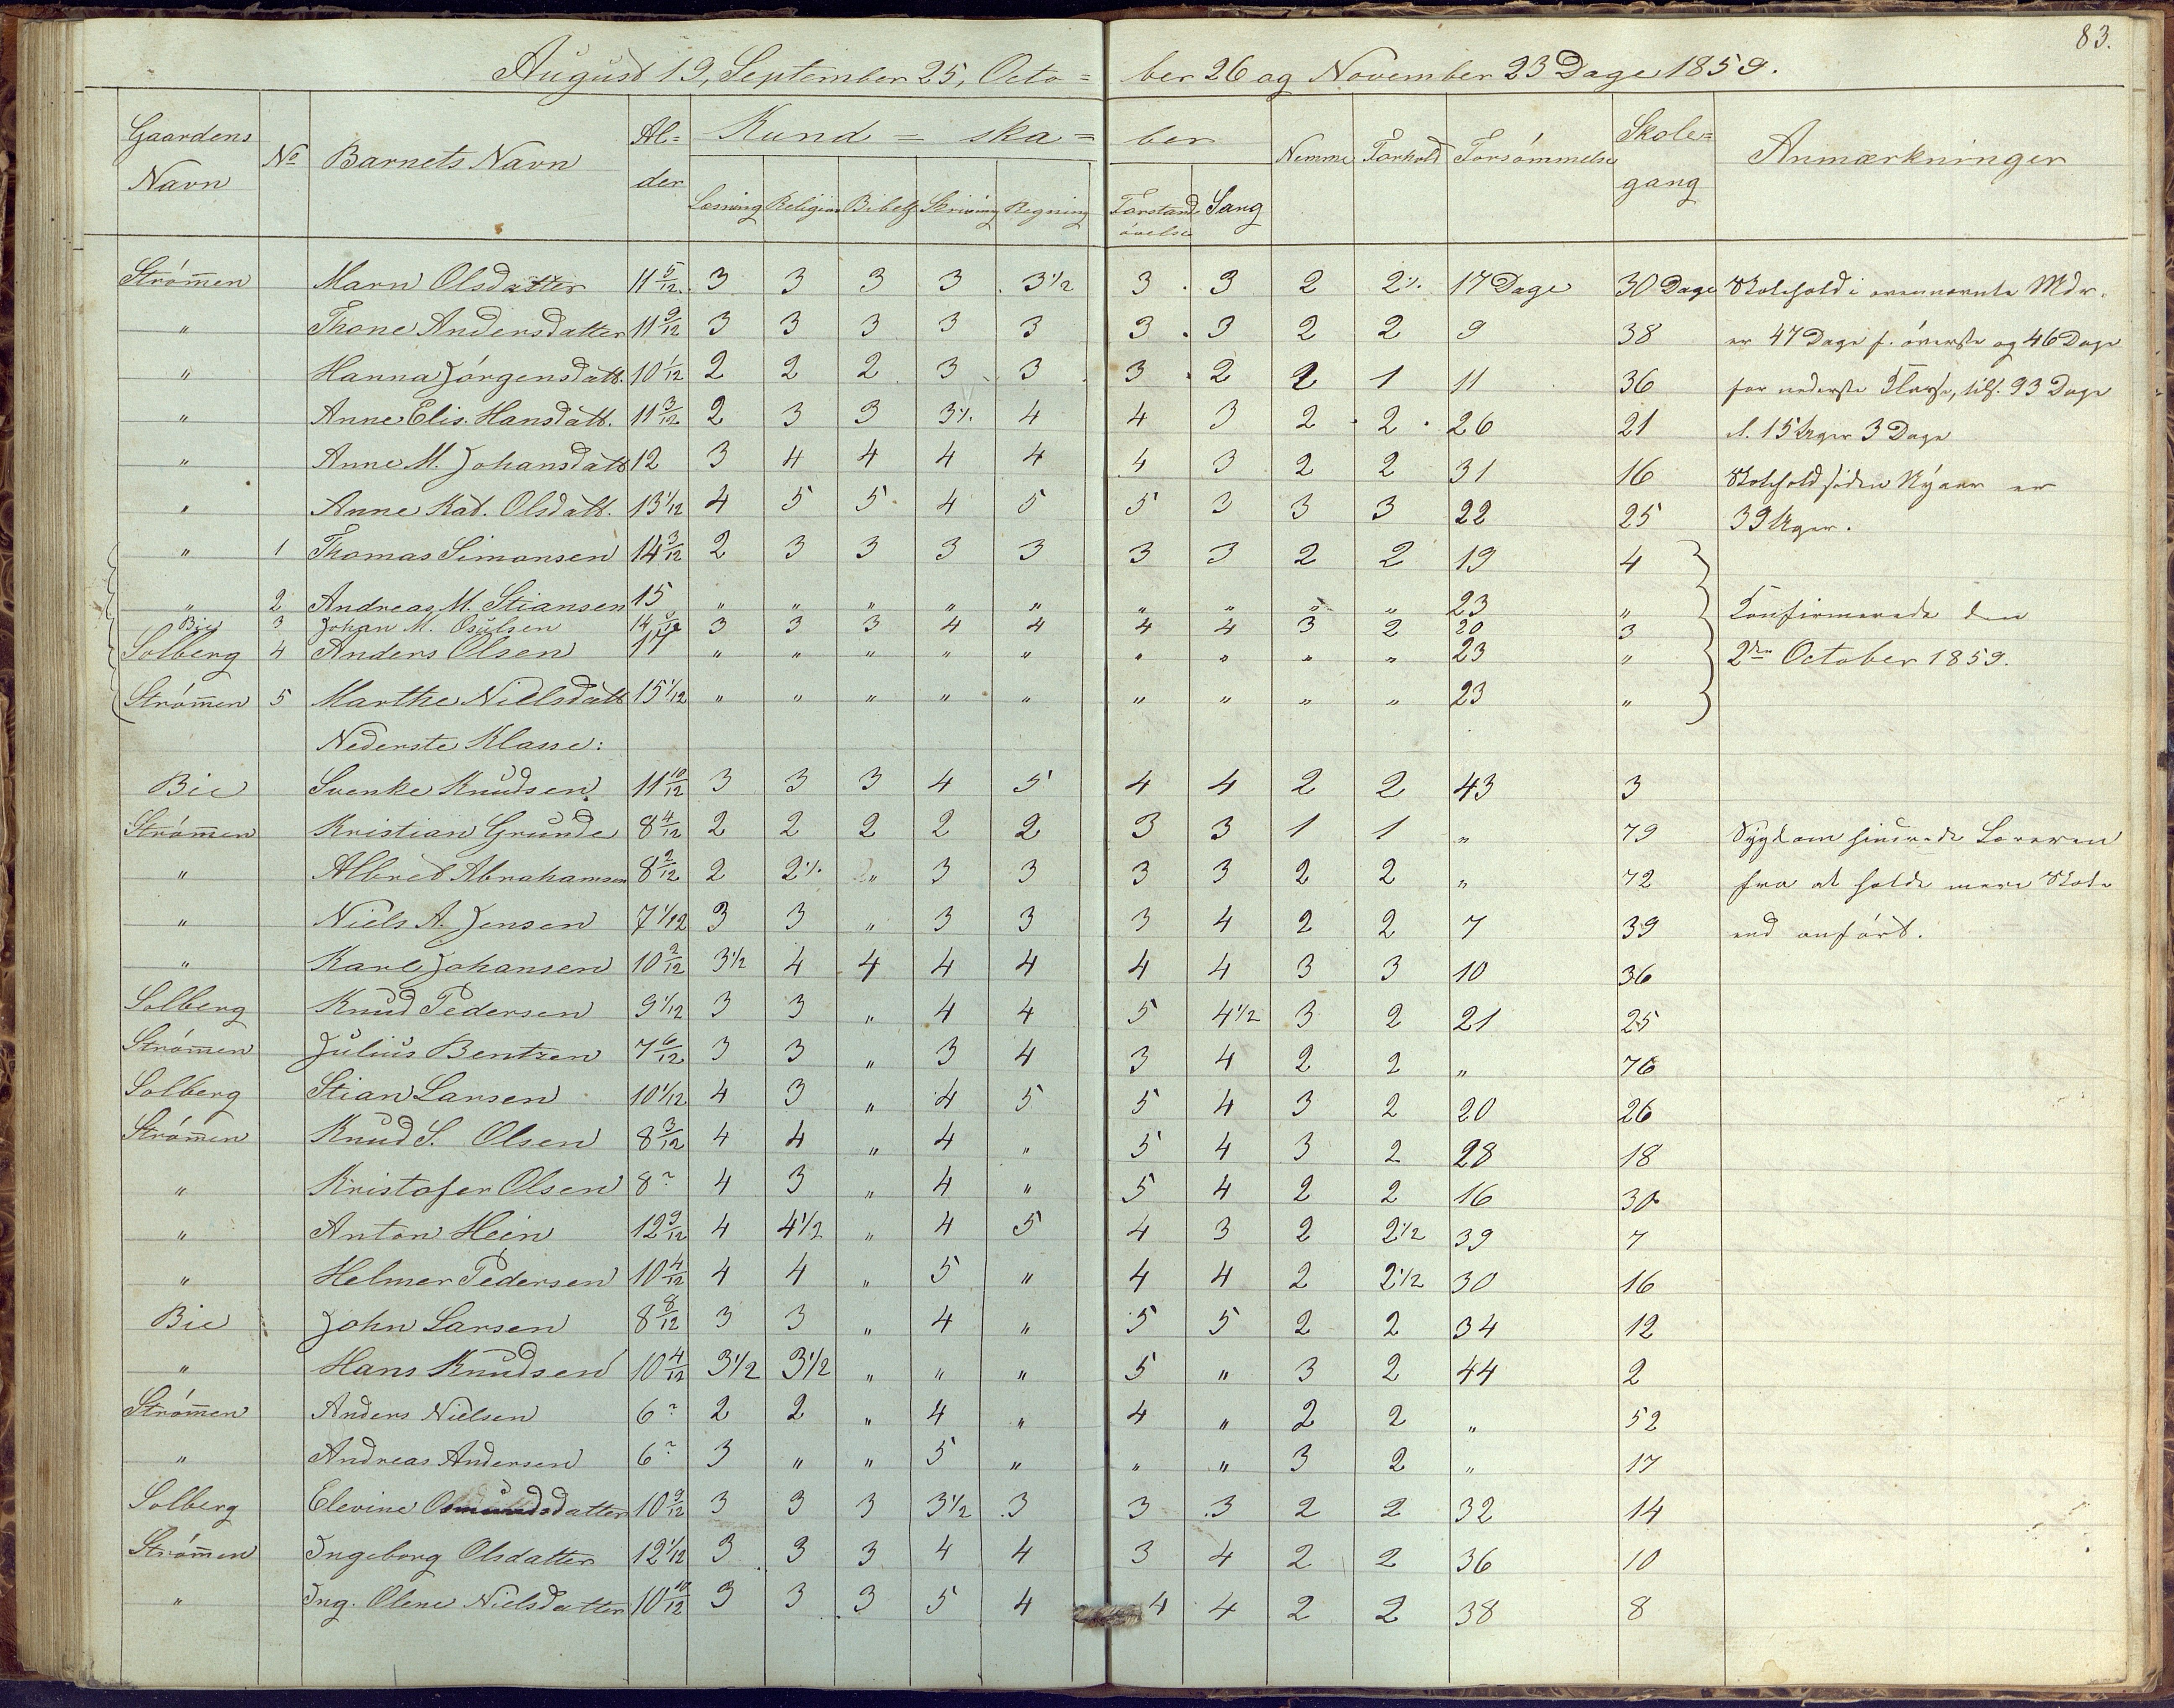 83.
August 19, September 25, Octo= ber 26 og November 23 Dage 1859.
Gaardens Navn | No | Barnets Navn | Al=der | Kund = ska = ber | Nemme | Forhold | Forsömmelse | Skole=gang | Anmærkninger
Læsning | Religion | Bibelh | Skrivning | Regning | Forstands övelse | Sang
Strömen Marn Olsdatter 11 5/12 3 3 3 3 3 1/2 3 3 2 2 1/. 17 Dage 30 Dage Skolehold i ovennævnte Mdr.
" Thone Andersdatter 11 9/12 3 3 3 3 3 3 3 2 2 9 38 er 47 Dage f. överste og 46 Dage
" Hanna Jörgensdatt. 10 1/12 2 2 2 3 3 3 2 2 1 11 36 for nederste Klasse, tils. 93 Dage
" Anne Elis. Hansdatt. 11 3/12 2 3 3 3 1/. 4 4 3 2 2 26 21 el. 15 Uger 3 Dage
" Anne M. Johansdatt 12 3 4 4 4 4 4 3 2 2 31 16 Skolehold siden Nyaar er
" Anne Kat. Olsdatt. 13 1/12 4 5 5 4 5 5 3 3 3 22 25 39 Uger.
" 1 Thomas Simonsen 14 3/12 2 3 3 3 3 3 3 2 2 19 4
" 2 Andreas M. Stiansen 15 " " " " " " " " " 23 " Konfirmerede den
Bie 3 Johan M. Osulsen 14 3 3 3 4 4 4 4 3 2 20 3
Solberg 4 Anders Olsen 14 " " " " " " " " " 23 " 2den October 1859.
Strömen 5 Marthe Nielsdatt 15 1/12 " " " " " " " " " 23 "
Nederste Klasse:
Bie Svenke Knudsen 11 10/12 3 3 3 4 5 4 4 2 2 43 3
Strömen Kristian Grunde 8 4/12 2 2 2 2 2 3 3 1 1 " 79 Sygdom hindrede Læreren
" Albret Abrahamsen 8 2/12 2 2 1/. " 3 3 3 3 2 2 " 72 fra at holde mere Skole
" Niels A. Jensen 7 1/12 3 3 " 3 3 3 4 2 2 7 39 end anfört.
" Karl Johansen 10 2/12 3 1/2 4 4 4 4 4 4 3 3 10 36
Solberg Knud Pedersen 9 1/12 3 3 " 4 4 5 4 1/2 3 2 21 25
Strömen Julius Bentzen 7 6/12 3 3 " 3 4 3 4 2 2 " 76
Solberg Stian Larsen 10 1/12 4 3 " 4 5 5 4 3 2 20 26
Strömen Knud S. Olsen 8 3/12 4 4 " 4 " 5 4 3 2 28 18
" Kristofer Olsen 8 ? 4 3 " 4 " 5 4 2 2 16 30
" Anton Hein 12 9/12 4 4 1/2 " 4 5 4 3 2 2 1/2 39 7
" Helmer Pedersen 10 4/12 4 4 " 5 " 4 4 2 2 1/2 30 16
Bie John Larsen 8 8/12 3 3 " 4 " 5 5 2 2 34 12
" Hans Knudsen 10 4/12 3 1/2 3 1/2 " " " 5 " 3 2 44 2
Strömen Anders Nielsen 6 ? 2 2 " 4 " 4 " 2 2 " 52
" Andreas Andersen 6 ? 3 " " 5 " " " 3 2 " 17
Solberg Elevine Osmundsdatter 10 9/12 3 3 3 3 1/2 3 3 3 2 2 32 14
Strömen Ingeborg Olsdatter 12 1/12 3 3 3 4 4 3 4 2 2 36 10
" Ing. Olene Nielsdatter 10 10/12 3 3 3 5 4 4 4 2 2 38 8